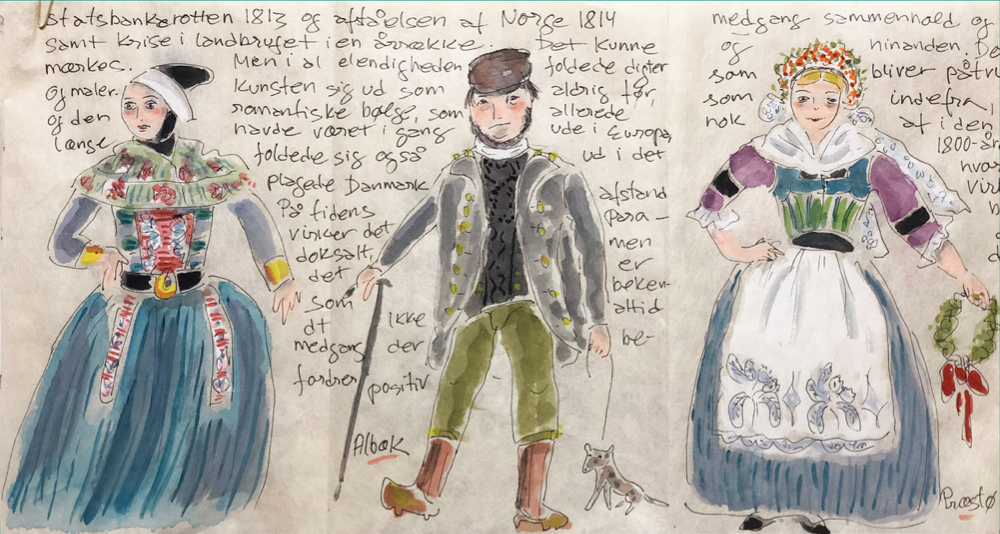 Statsbankerotten 1813 og afståelsen af Norge 1814
samt krise i landbruget i en årrække. Det kunne
mærkes. Men i al elendigheden foldede digter
og maler. kunsten sig ud som aldrig før,
og den romantiske bølge, som allerede
længe havde været i gang ude i Europa,
foldede sig også ud i det
plagede Danmark afstand
På tidens Para-
virker det men
doksalt, er
det beken-
som altid
dt ikke be-
medgang der
fordrer positiv
Albæk
medgang sammenhold og
og hinanden. De
som bliver påtru
som indefra,
nok af i den
1800-år
Præstø